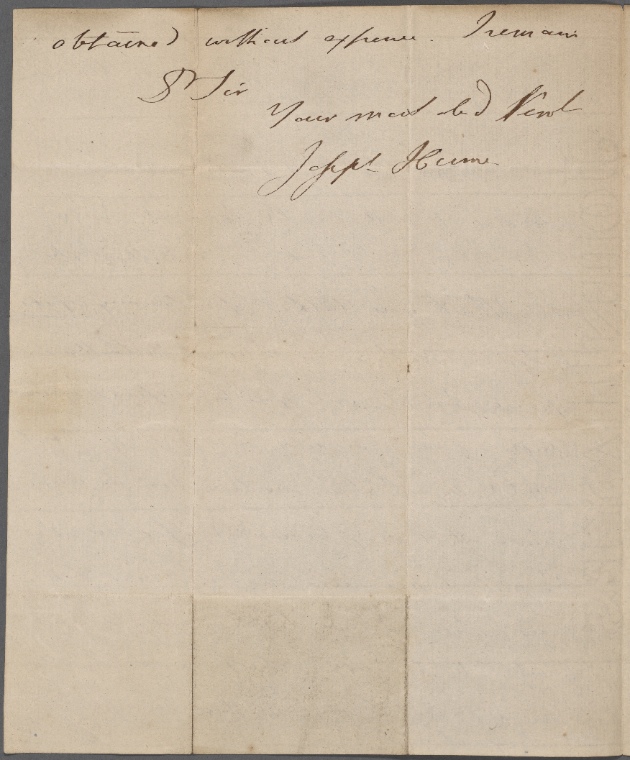 obtained without expence. I remain
Dr Sir
Your most obd Servt
Joseph Hume